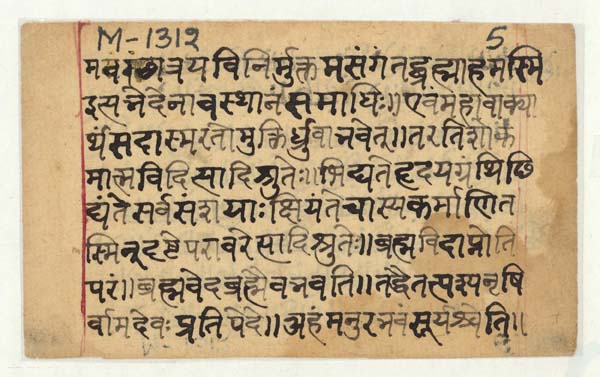 M-1312 5
विनिर्मुक्तमसंगं तद्ब्रह्माहमस्मि
इत्यभेदेनावस्थानं समाधिः॥ एवं महावाक्या
र्थं सदास्मरतो मुक्तिर्ध्रुवा भवेत्॥ तरति शोक
मात्मविदित्यादिश्रुतेः॥ भिद्यते हृदयग्रंथिछि
द्यंते सर्वसंशयाः क्षियंते चास्य कर्माणि त
स्मिन् दृष्टे परावरेत्यादिश्रुतेः॥ ब्रह्मविदाप्नोति
परं॥ ब्रह्मवेद ब्रह्मैव भवति॥ तद्धैतत्पश्यनृषि
र्वामदेवः प्रतिपेदे॥ अहं मनुरभवं सूर्यश्चेति॥